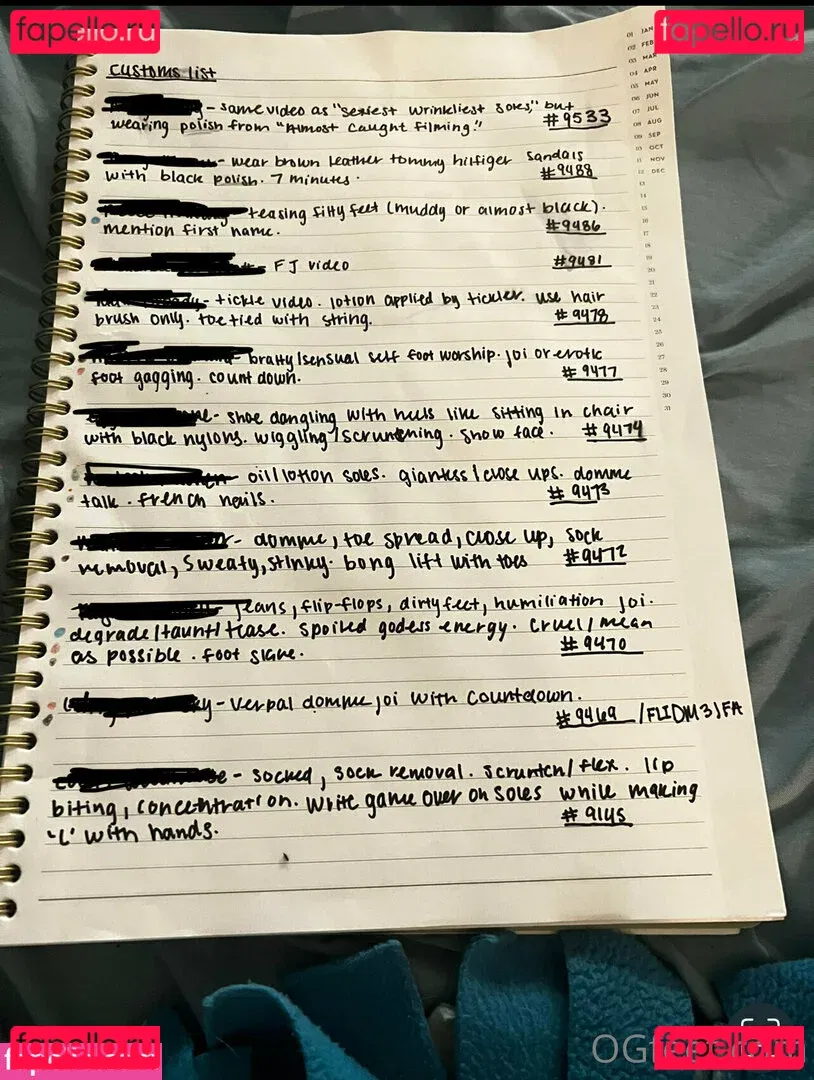 fapello.ru
fapello.ru
customs list
01 JAN
02 FEB
03 MAR
04 APR
05 MAY
06 JUN
07 JUL
08 AUG
09 SEP
10 OCT
11 NOV
12 DEC
13
14
15
16
17
18
19
20
21
22
23
24
25
26
27
28
29
30
31
- same video as "sexiest wrinkliest soles," but
wearing polish from "Almost caught filming." #9533
- wear brown leather tommy hilfiger sandals
with black polish. 7 minutes. #9488
- teasing filty feet (muddy or almost black).
mention first name. #9486
FJ video #9481
- tickle video. lotion applied by tickler. use hair
brush only. toe tied with string. #9478
- bratty/sensual self foot worship. joi or erotic
foot gagging. count down. #9477
- shoe dangling with heels like sitting in chair
with black nylons. wiggling/scrunching. show face. #9474
- oil/lotion soles. giantess/close ups. domme
talk. french nails. #9473
- domme, toe spread, close up, sock
removal, sweaty, stinky. bong lift with toes #9472
jeans, flip-flops, dirty feet, humiliation joi.
degrade/taunt/tease. spoiled godess energy. cruel/mean
as possible. foot slave. #9470
- verbal domme joi with countdown.
#9469 /FLIDM3/FA
- socked, sock removal. scrunch/flex. lip
biting, concentration. write game over on soles while making
'L' with hands. #9145
fapello.ru
fapello.ru